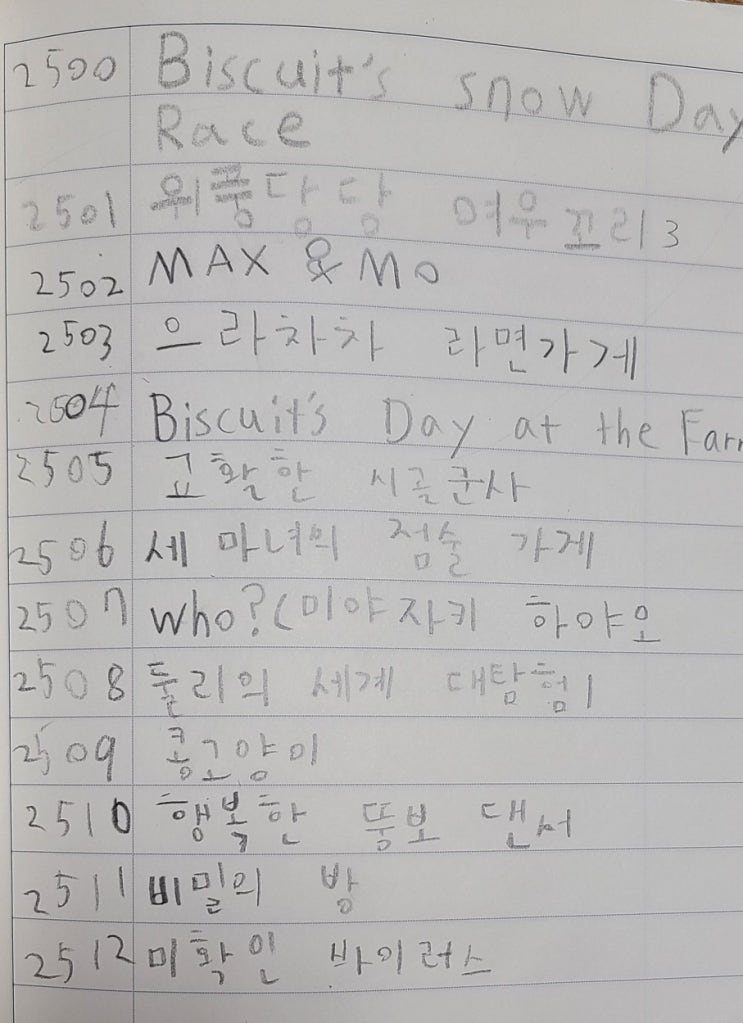 2500 Biscuit's snow Day
Race
2501 위풍당당 여우꼬리3
2502 MAX & MO
2503 으라차차 라면가게
2504 Biscuit's Day at the Farm
2505 교활한 시골군사
2506 세 마녀의 점술 가게
2507 Who?(미야자키 하야오
2508 둘리의 세계 대탐험1
2509 콩고양이
2510 행복한 뚱보 댄서
2511 비밀의 방
2512 미확인 바이러스